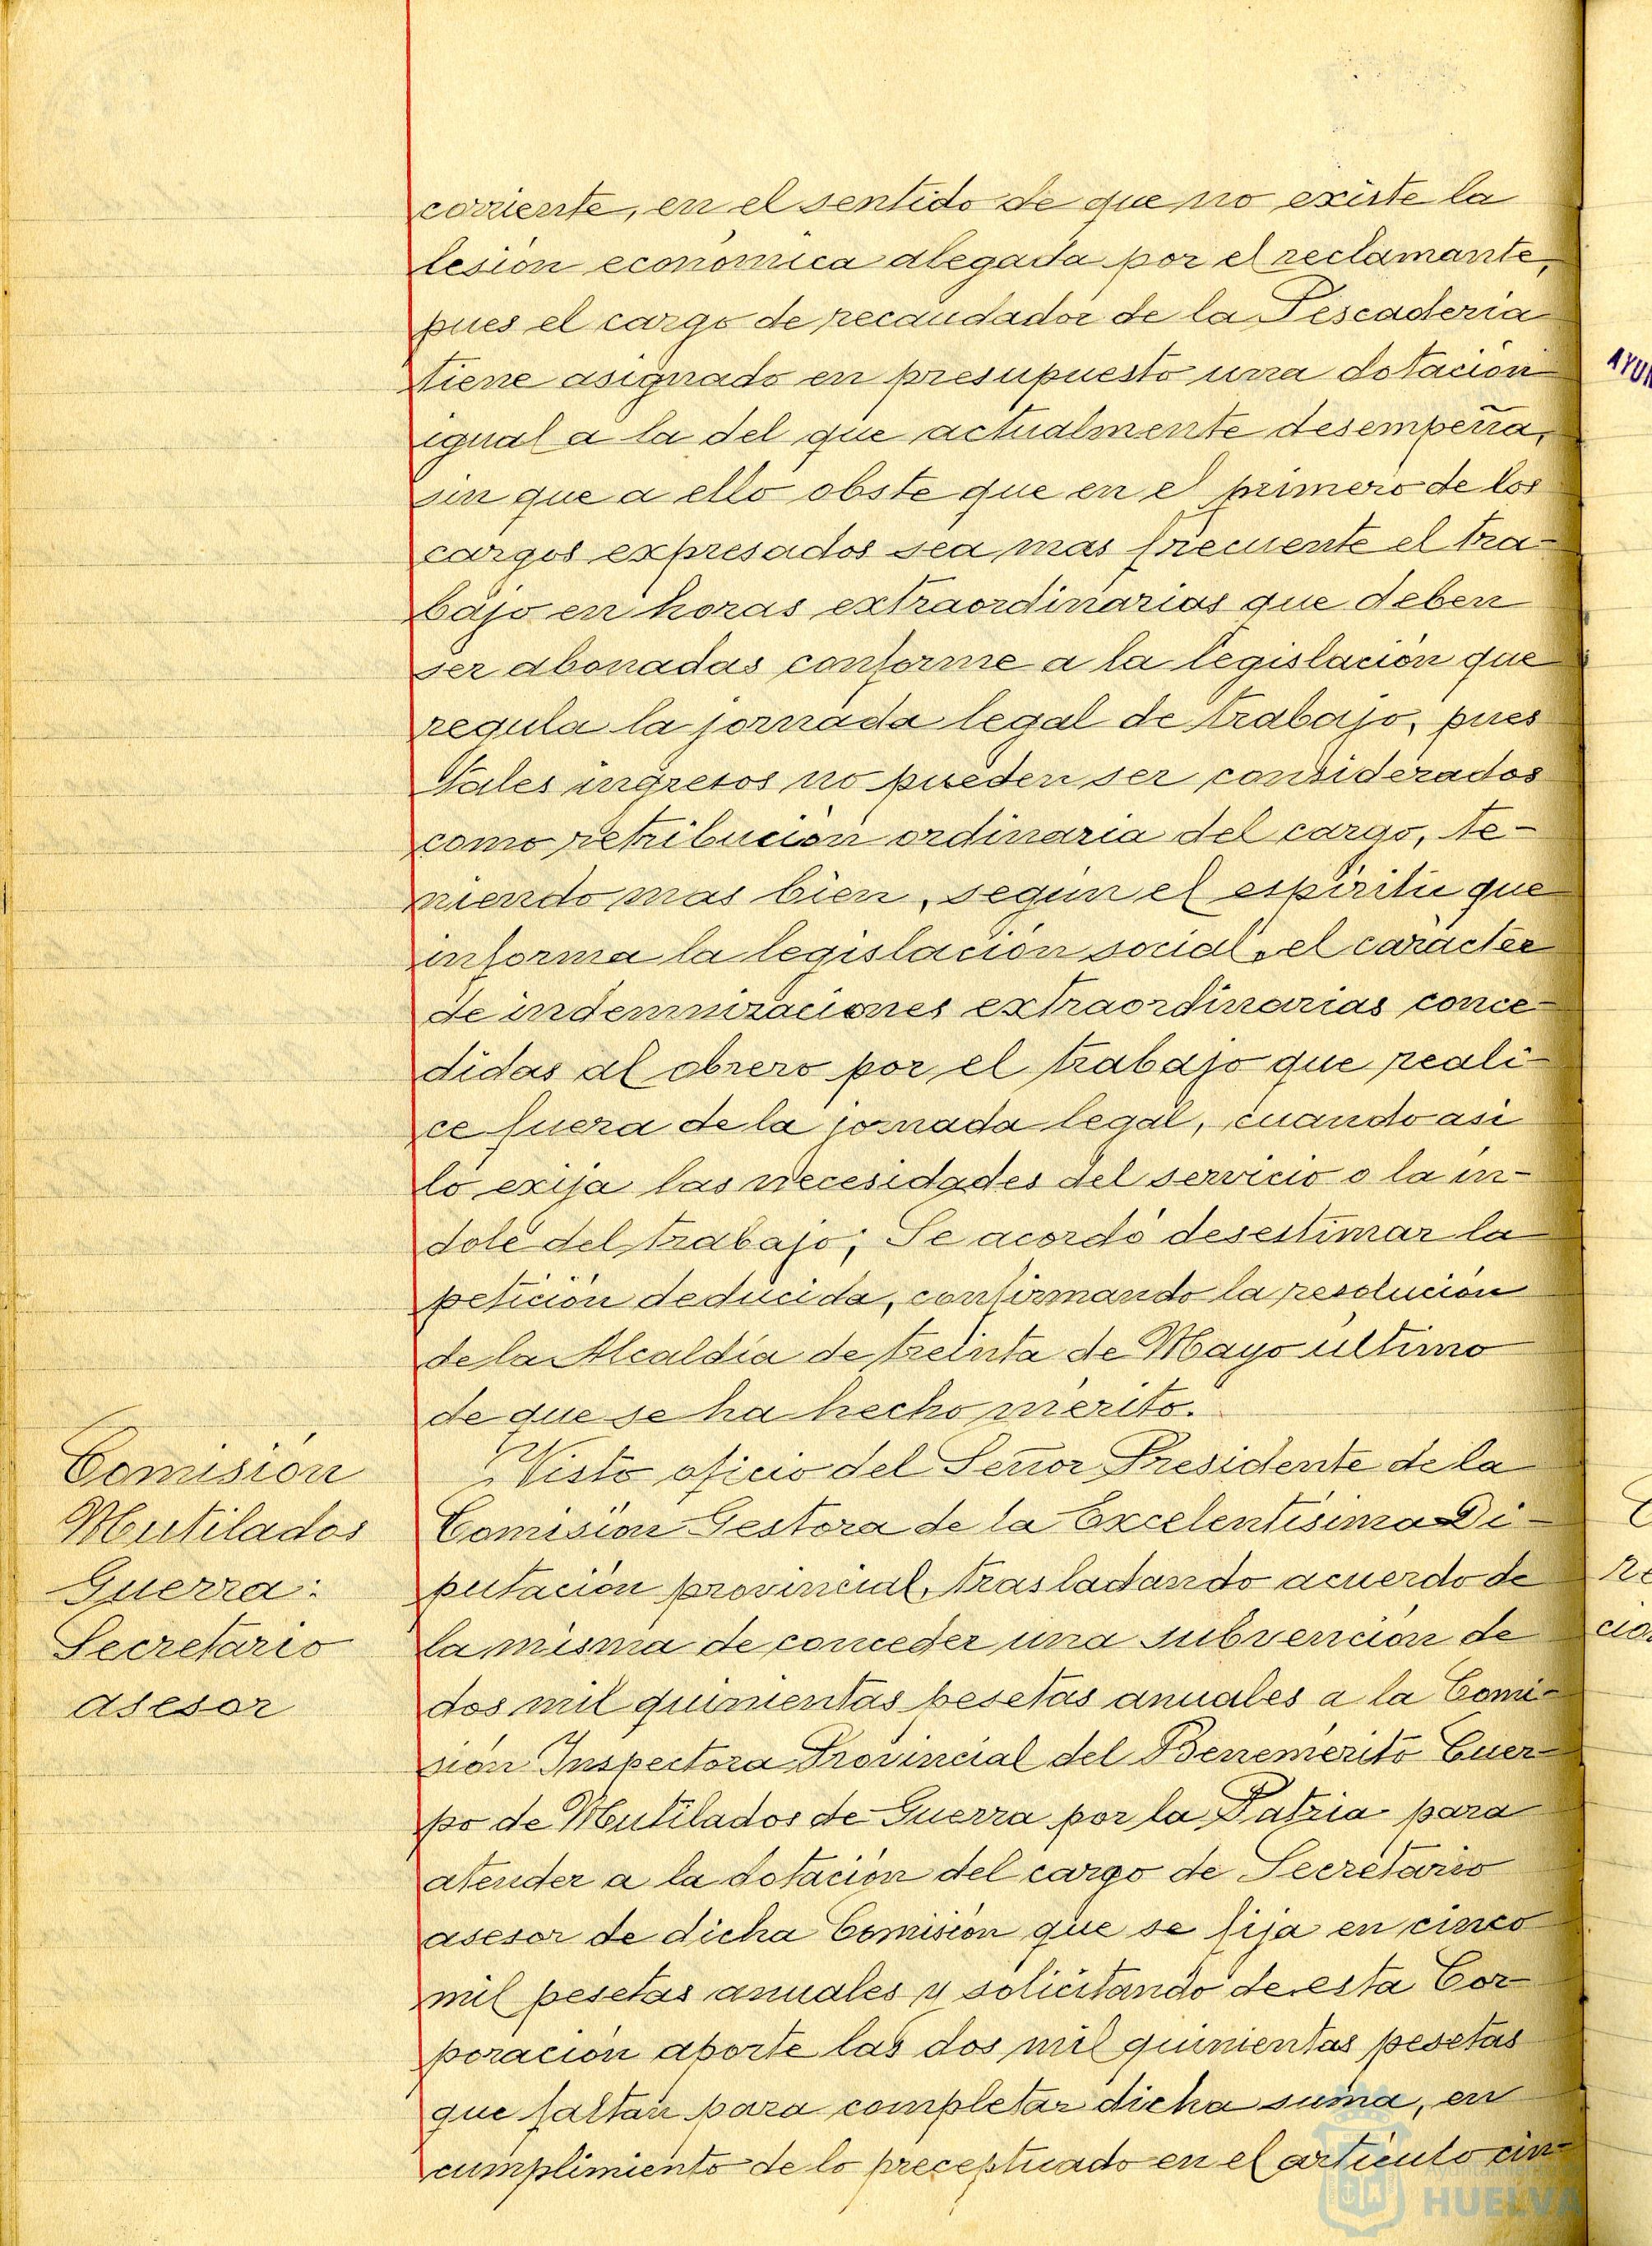 corriente, en el sentido de que no existe la
lesión económica alegada por el reclamante,
pues el cargo de recaudador de la Pescaderia
tiene asignado en presupuesto una dotación
igual a la del que actualmente desempeña,
sin que a ello obste que en el primero de los
cargos expresados sea mas frecuente el tra-
bajo en horas extraordinarias que deben
ser abonadas conforme a la legislación que
regula la jornada legal de trabajo, pues
tales ingresos no pueden ser considerados
como retribución ordinaria del cargo, te-
niendo mas bien, según el espiritu que
informa la legislación social, el caracter
de indemnizaciones extraordinarias conce-
didas al obrero por el trabajo que reali-
ce fuera de la jornada legal, cuando asi
lo exija las necesidades del servicio o la in-
dole del trabajo; Se acordó desestimar la
petición deducida, confirmando la resolución
de la Alcaldía de treinta de Mayo ultimo
de que se ha hecho mérito.
Comisión
Mutilados
Guerra:
Secretario
asesor
Visto oficio del Señor Presidente de la
Comisión Gestora de la Excelentísima Di-
putación provincial, trasladando acuerdo de
la misma de conceder una subvención de
dos mil quinientas pesetas anuales a la Comi-
sión Inspectora Provincial del Benemérito Cuer-
po de Mutilados de Guerra por la Patria para
atender a la dotación del cargo de Secretario
asesor de dicha Comisión que se fija en cinco
mil pesetas anuales y solicitando de esta Cor-
poración aporte las dos mil quinientas pesetas
que faltan para completar dicha suma, en
cumplimiento de lo preceptuado en el articulo cin-
AYUN
Ayuntamiento de
HUELVA